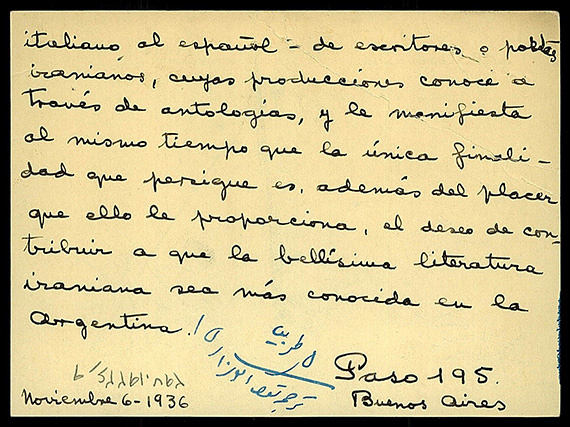 italiano al español - de escritores o poetas
iranianos, cuyas producciones conoce a
través de antologías, y le manifiesta
al mismo tiempo que la única finali-
dad que persigue es, además del placer
que ello le proporciona, el deseo de con-
tribuir a que la bellísima literatura
iraniana sea más conocida en la
Argentina.
Paso 195.
Noviembre 6-1936
Buenos Aires